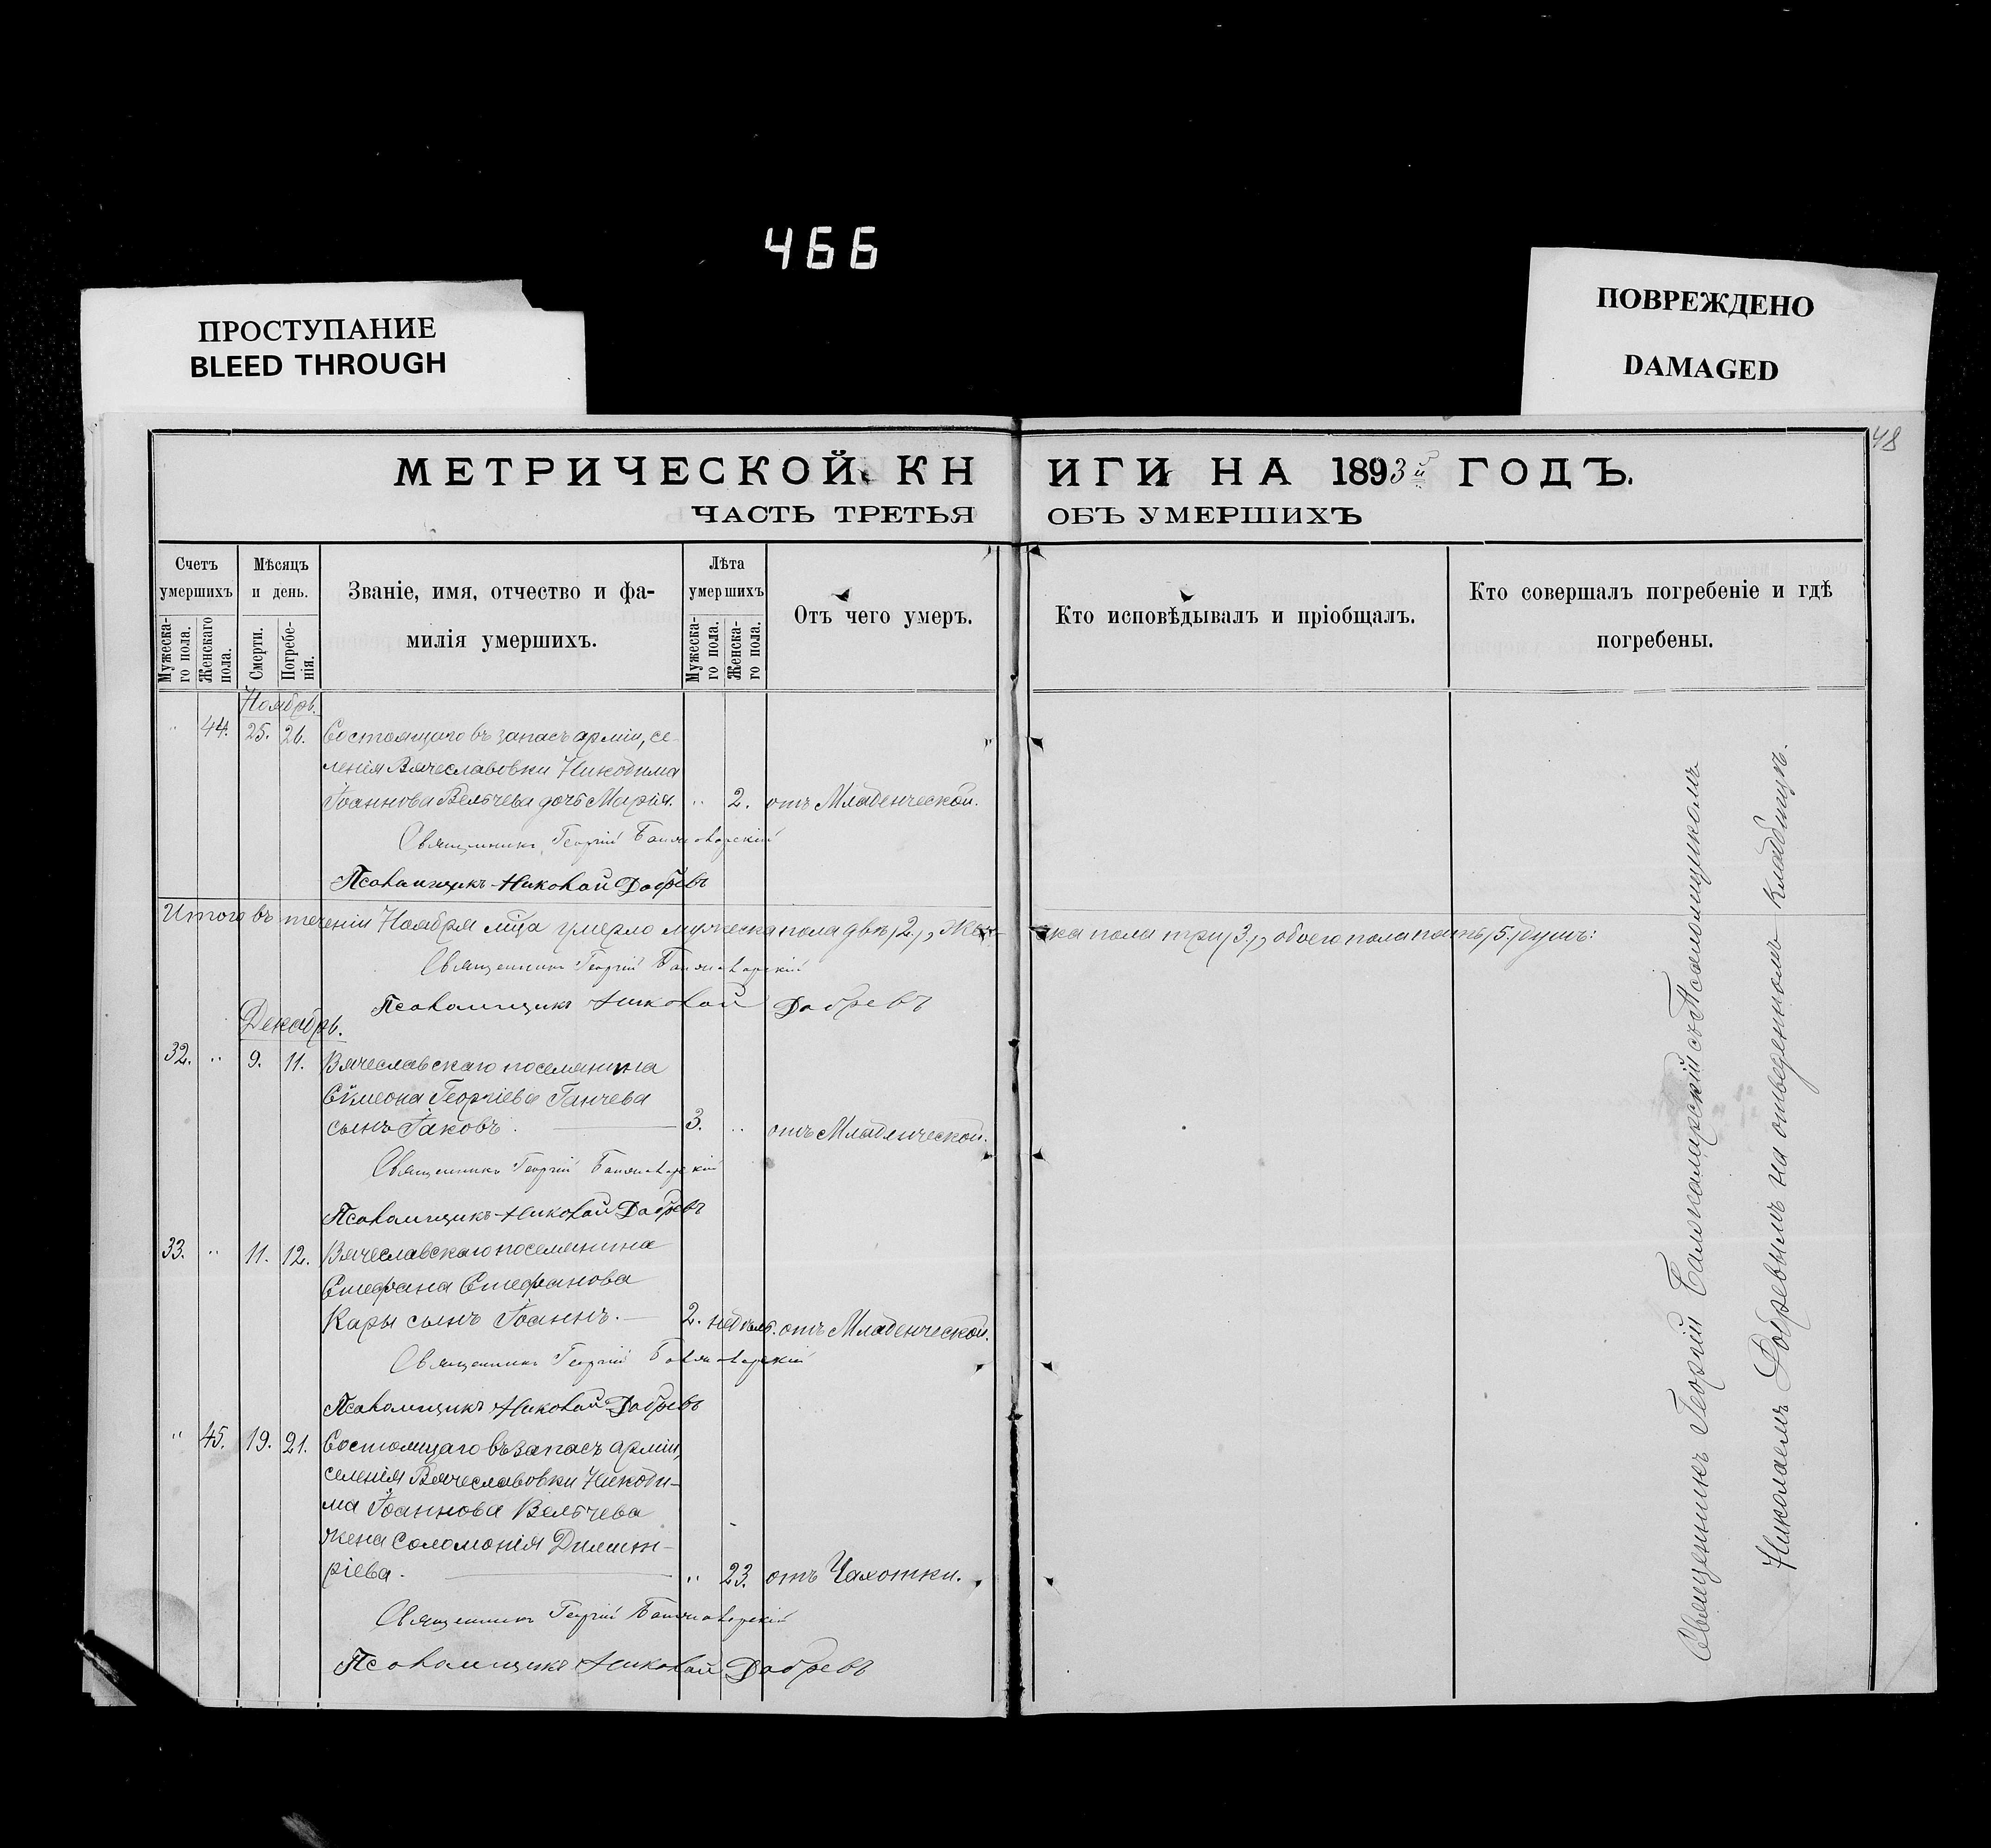 466
ПРОСТУПАНИЕ
BLEED THROUGH
ПОВРЕЖДЕНО
DAMAGED
48
МЕТРИЧЕСКОЙ КНИГИ НА 1893й ГОДЪ.
ЧАСТЬ ТРЕТЬЯ ОБЪ УМЕРШИХЪ
Счетъ умершихъ
Мужеска-го пола.
Женскаго пола.
Мѣсяцъ и день.
Смерти.
Погребе-нія.
Званіе, имя, отчество и фа-
милія умершихъ.
Лѣта умершихъ
Мужеска-го пола.
Женска-го пола.
Отъ чего умеръ.
Кто исповѣдывалъ и пріобщалъ.
Кто совершалъ погребеніе и гдѣ
погребены.
Ноябрь.
" 44. 25. 26. Состоящаго въ запасѣ арміи, се-
ленія Вячеславовки Никодима
Іоаннова Вельчева дочь Марія. " 2. отъ Младенческой.
Священникъ Георгій
Псаломщикъ Николай Добревъ
Итого въ теченіи Ноября м‑ца умерло мужеска пола два /2./, жен-ска пола три /3./, обоего пола пять /5./ душъ:
Священникъ Георгій
Псаломщикъ Николай Добревъ
Декабрь.
32. " 9. 11. Вячеславскаго поселянина
Сѵмеона Георгіева Ганчева
сынъ Іаковъ. 3. " отъ Младенческой.
Священникъ Георгій
Псаломщикъ Николай Добревъ
33. " 11. 12. Вячеславскаго поселянина
Стефана Стефанова
Кары сынъ Іоаннъ. 2. недѣль. отъ Младенческой.
Священникъ Георгій
Псаломщикъ Николай Добревъ
" 45. 19. 21. Состоящаго въ запасѣ арміи,
селенія Вячеславовки Никоди-
ма Іоаннова Вельчева
жена Соломонія Димит-
ріева. " 23. отъ Чахотки.
Священникъ Георгій
Псаломщикъ Николай Добревъ
Священникъ Георгій съ Псаломщикомъ
Николаемъ Добревымъ на отведенномъ кладбищѣ.